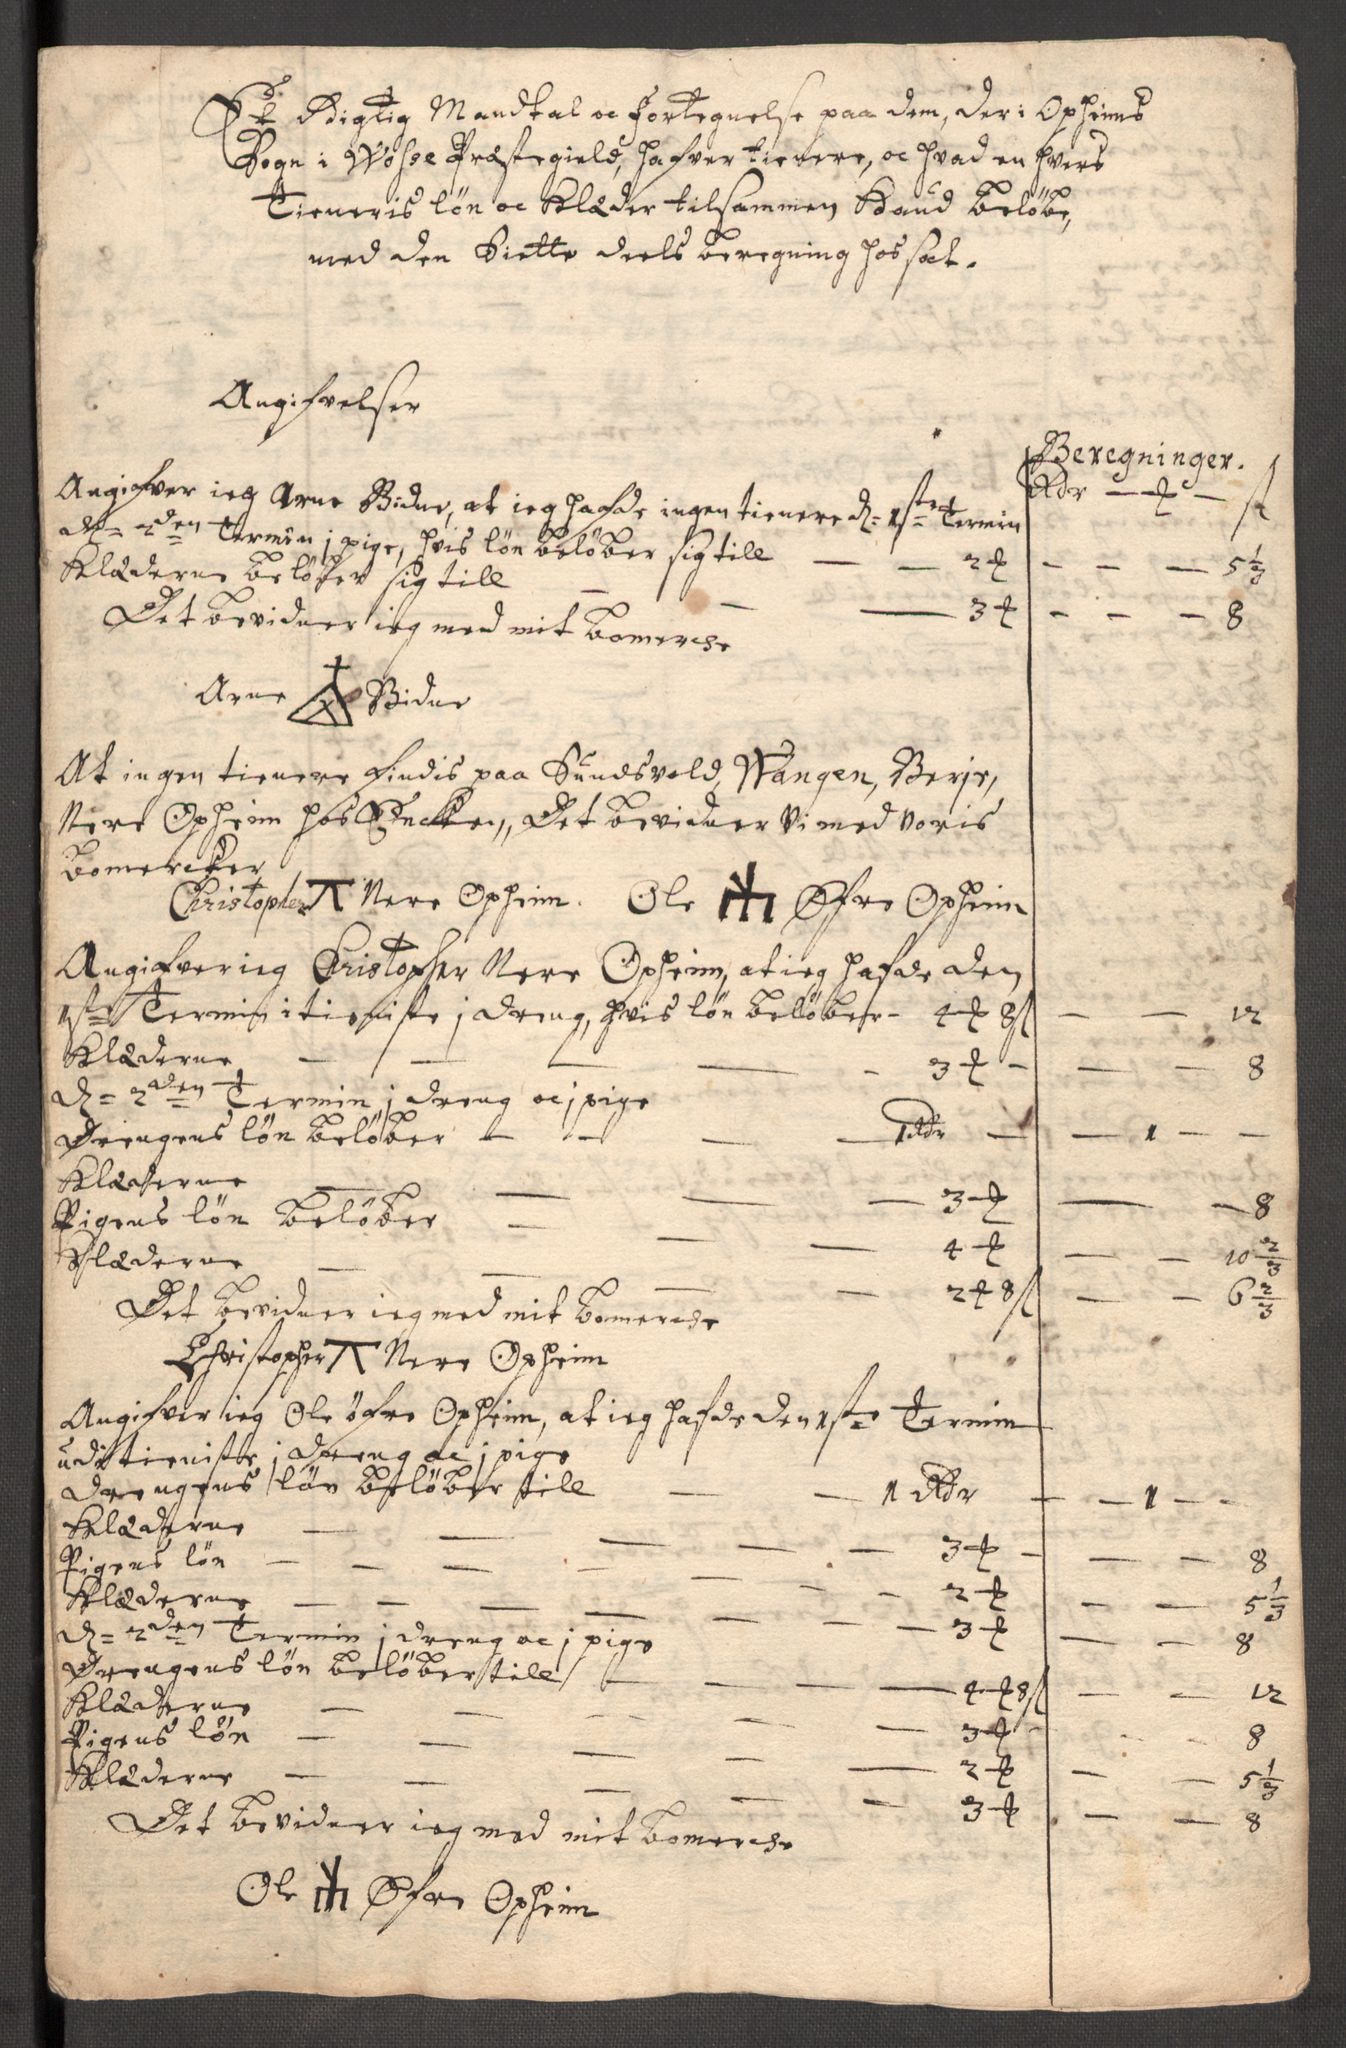 Et Rigtig Mandtal oc Fortegnelse paa dem, der i Opheims
Sogn i Wosse Præstegield, hafver tienere, oc hvad en hvers
Tieneris løn oc Klæder tilsammen Kand beløbe,
med den Siette deels beregning hossat.
Angifvelser
Beregninger.
Rdr — ꝷ — ß
Angifver ieg Arne Bidne, at ieg hafde ingen tienere d= 1ste Termin
d= 2den Termin j pige, hvis løn beløber sig till — — 2 ꝷ — — — 5 1/3
Klæderne beløber sig till — — — 3 ꝷ — — — 8
Det bevidner ieg med mit bomercke
Arne Bidne
At ingen tienere findis paa Sundsvold, Wangen, Berje,
Nere Opheim hos Encken, Det bevidner Vi med voris
bomercker
Christopher Nere Opheim. Ole Øfre Opheim
Angifver ieg Christopher Nere Opheim, at ieg hafde den
1ste Termin i tieniste j dreng, hvis løn beløber — 4 ꝷ 8 ß — — 12
Klæderne — — — — — 3 ꝷ — — — 8
d= 2den Termin j dreng oc j pige
Drengens løn beløber — — — — 1 Rdr — — 1 — —
Klæderne — — — — 3 ꝷ — — 8
Pigens løn beløber — — — 4 ꝷ — — 10 2/3
Klæderne — — — — 2 ꝷ 8 ß — — 6 2/3
Det bevidner ieg med mit bomercke
Christopher Nere Opheim
Angifver ieg Ole Øfre Opheim, at ieg hafde den 1ste Termin
udi tieniste j dreng oc j pige
Drengens løn beløber till — — 1 Rdr — — 1 — —
Klæderne — — — — 3 ꝷ — — — 8
Pigens løn — — — — — — 2 ꝷ — — 5 1/3
Klæderne — — — — — — — 3 ꝷ — — 8
d= 2den Termin j dreng oc j pige
Drengens løn beløber till — — — — 4 ꝷ 8 ß — — 12
Klæderne — — — — — 3 ꝷ — — — 8
Pigens løn — — — — — 2 ꝷ — — 5 1/3
Klæderne — — — — — 3 ꝷ — — 8
Det bevidner ieg med mit bomercke
Ole Øfre Opheim